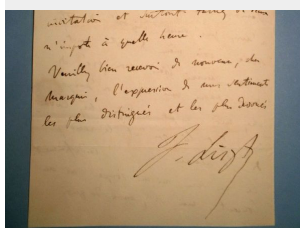 invitation et
n'importe à quelle heure.
Veuillez bien recevoir de nouveau, cher
Marquis, l'expression de mes sentiments
les plus distingués et les plus dévoués
F. Liszt